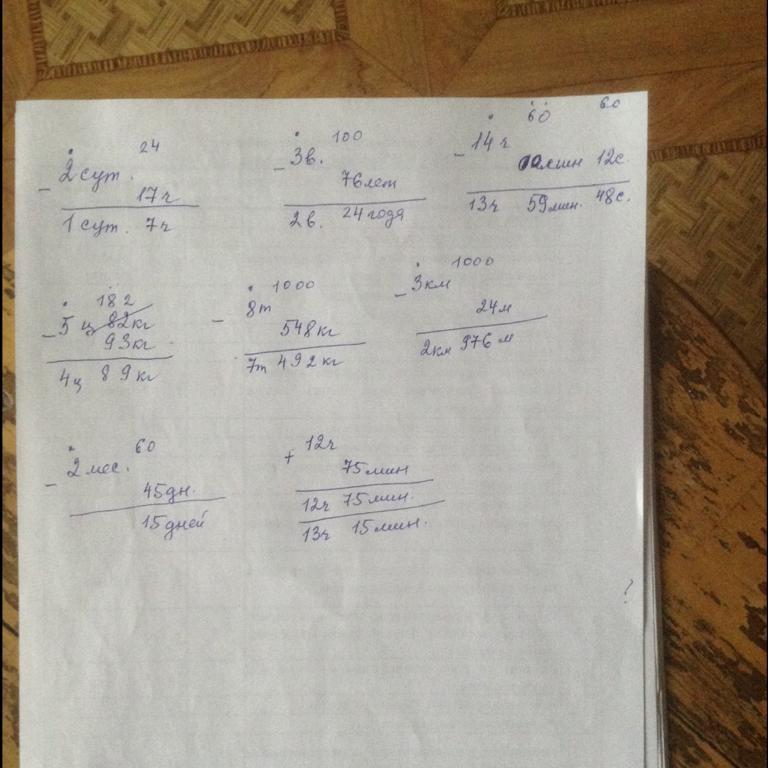 24
- 2 сут.
17 ч
1 сут. 7 ч
100
- 3 в.
76 лет
2 в. 24 года
60 60
- 14 ч
мин 12 с.
13 ч 59 мин. 48 с.
182
- 5 ц 82 кг
93 кг
4 ц 89 кг
1000
- 8 т
548 кг
7 т 492 кг
1000
- 3 км
24 м
2 км 976 м
60
- 2 мес.
45 дн.
15 дней
+ 12 ч
75 мин
12 ч 75 мин.
13 ч 15 мин.
?